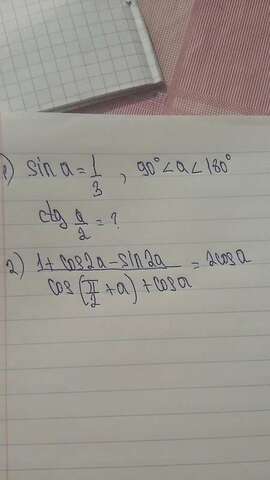 1) sin a = 1/3 , 90° < a < 180°
ctg a/2 = ?
2) (1 + cos2a - sin2a)/(cos(π/2 + a) + cosa) = 2cosa